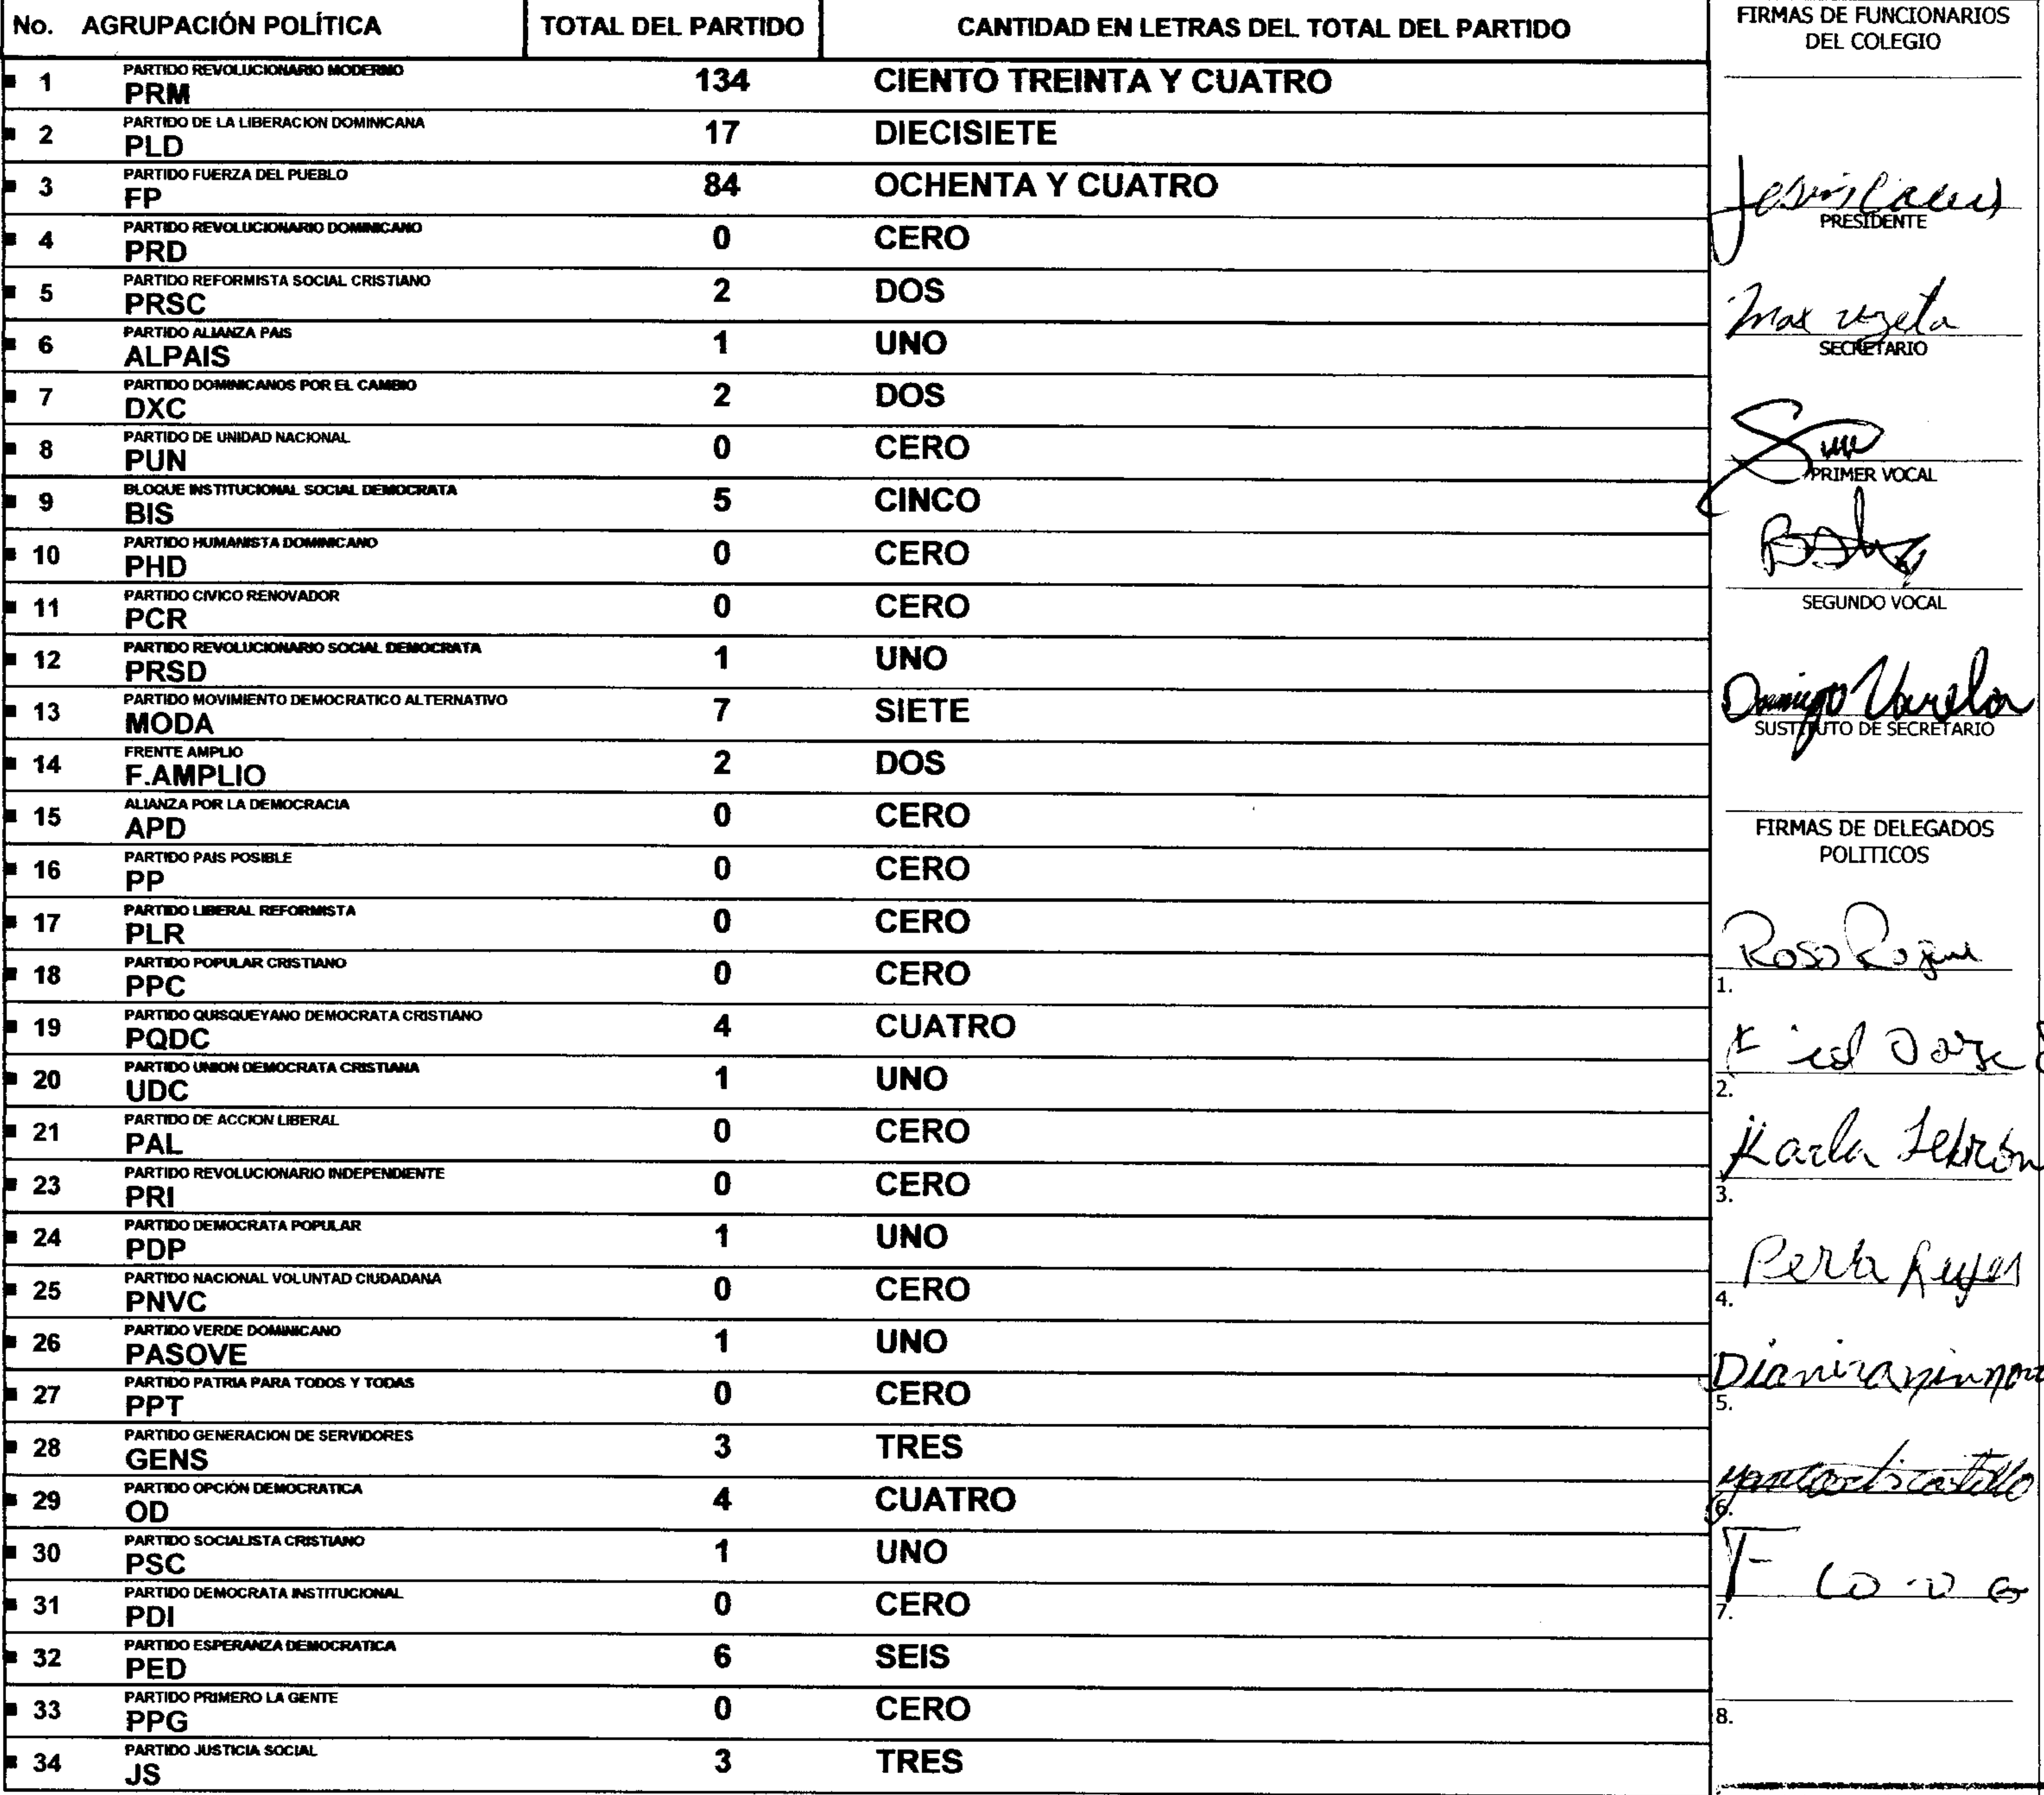 No. AGRUPACIÓN POLÍTICA TOTAL DEL PARTIDO CANTIDAD EN LETRAS DEL TOTAL DEL PARTIDO
1 PARTIDO REVOLUCIONARIO MODERNO
PRM 134 CIENTO TREINTA Y CUATRO
2 PARTIDO DE LA LIBERACION DOMINICANA
PLD 17 DIECISIETE
3 PARTIDO FUERZA DEL PUEBLO
FP 84 OCHENTA Y CUATRO
4 PARTIDO REVOLUCIONARIO DOMINICANO
PRD 0 CERO
5 PARTIDO REFORMISTA SOCIAL CRISTIANO
PRSC 2 DOS
6 PARTIDO ALIANZA PAIS
ALPAIS 1 UNO
7 PARTIDO DOMINICANOS POR EL CAMBIO
DXC 2 DOS
8 PARTIDO DE UNIDAD NACIONAL
PUN 0 CERO
9 BLOQUE INSTITUCIONAL SOCIAL DEMOCRATA
BIS 5 CINCO
10 PARTIDO HUMANISTA DOMINICANO
PHD 0 CERO
11 PARTIDO CIVICO RENOVADOR
PCR 0 CERO
12 PARTIDO REVOLUCIONARIO SOCIAL DEMOCRATA
PRSD 1 UNO
13 PARTIDO MOVIMIENTO DEMOCRATICO ALTERNATIVO
MODA 7 SIETE
14 FRENTE AMPLIO
F.AMPLIO 2 DOS
15 ALIANZA POR LA DEMOCRACIA
APD 0 CERO
16 PARTIDO PAIS POSIBLE
PP 0 CERO
17 PARTIDO LIBERAL REFORMISTA
PLR 0 CERO
18 PARTIDO POPULAR CRISTIANO
PPC 0 CERO
19 PARTIDO QUISQUEYANO DEMOCRATA CRISTIANO
PQDC 4 CUATRO
20 PARTIDO UNION DEMOCRATA CRISTIANA
UDC 1 UNO
21 PARTIDO DE ACCION LIBERAL
PAL 0 CERO
23 PARTIDO REVOLUCIONARIO INDEPENDIENTE
PRI 0 CERO
24 PARTIDO DEMOCRATA POPULAR
PDP 1 UNO
25 PARTIDO NACIONAL VOLUNTAD CIUDADANA
PNVC 0 CERO
26 PARTIDO VERDE DOMINICANO
PASOVE 1 UNO
27 PARTIDO PATRIA PARA TODOS Y TODAS
PPT 0 CERO
28 PARTIDO GENERACION DE SERVIDORES
GENS 3 TRES
29 PARTIDO OPCIÓN DEMOCRATICA
OD 4 CUATRO
30 PARTIDO SOCIALISTA CRISTIANO
PSC 1 UNO
31 PARTIDO DEMOCRATA INSTITUCIONAL
PDI 0 CERO
32 PARTIDO ESPERANZA DEMOCRATICA
PED 6 SEIS
33 PARTIDO PRIMERO LA GENTE
PPG 0 CERO
34 PARTIDO JUSTICIA SOCIAL
JS 3 TRES
FIRMAS DE FUNCIONARIOS
DEL COLEGIO
PRESIDENTE
Max
SECRETARIO
PRIMER VOCAL
SEGUNDO VOCAL
Domingo Varela
SUSTITUTO DE SECRETARIO
FIRMAS DE DELEGADOS
POLITICOS
1.
2.
Karla Lebrón
3.
Perla Reyes
4.
5.
castillo
6.
7.
8.